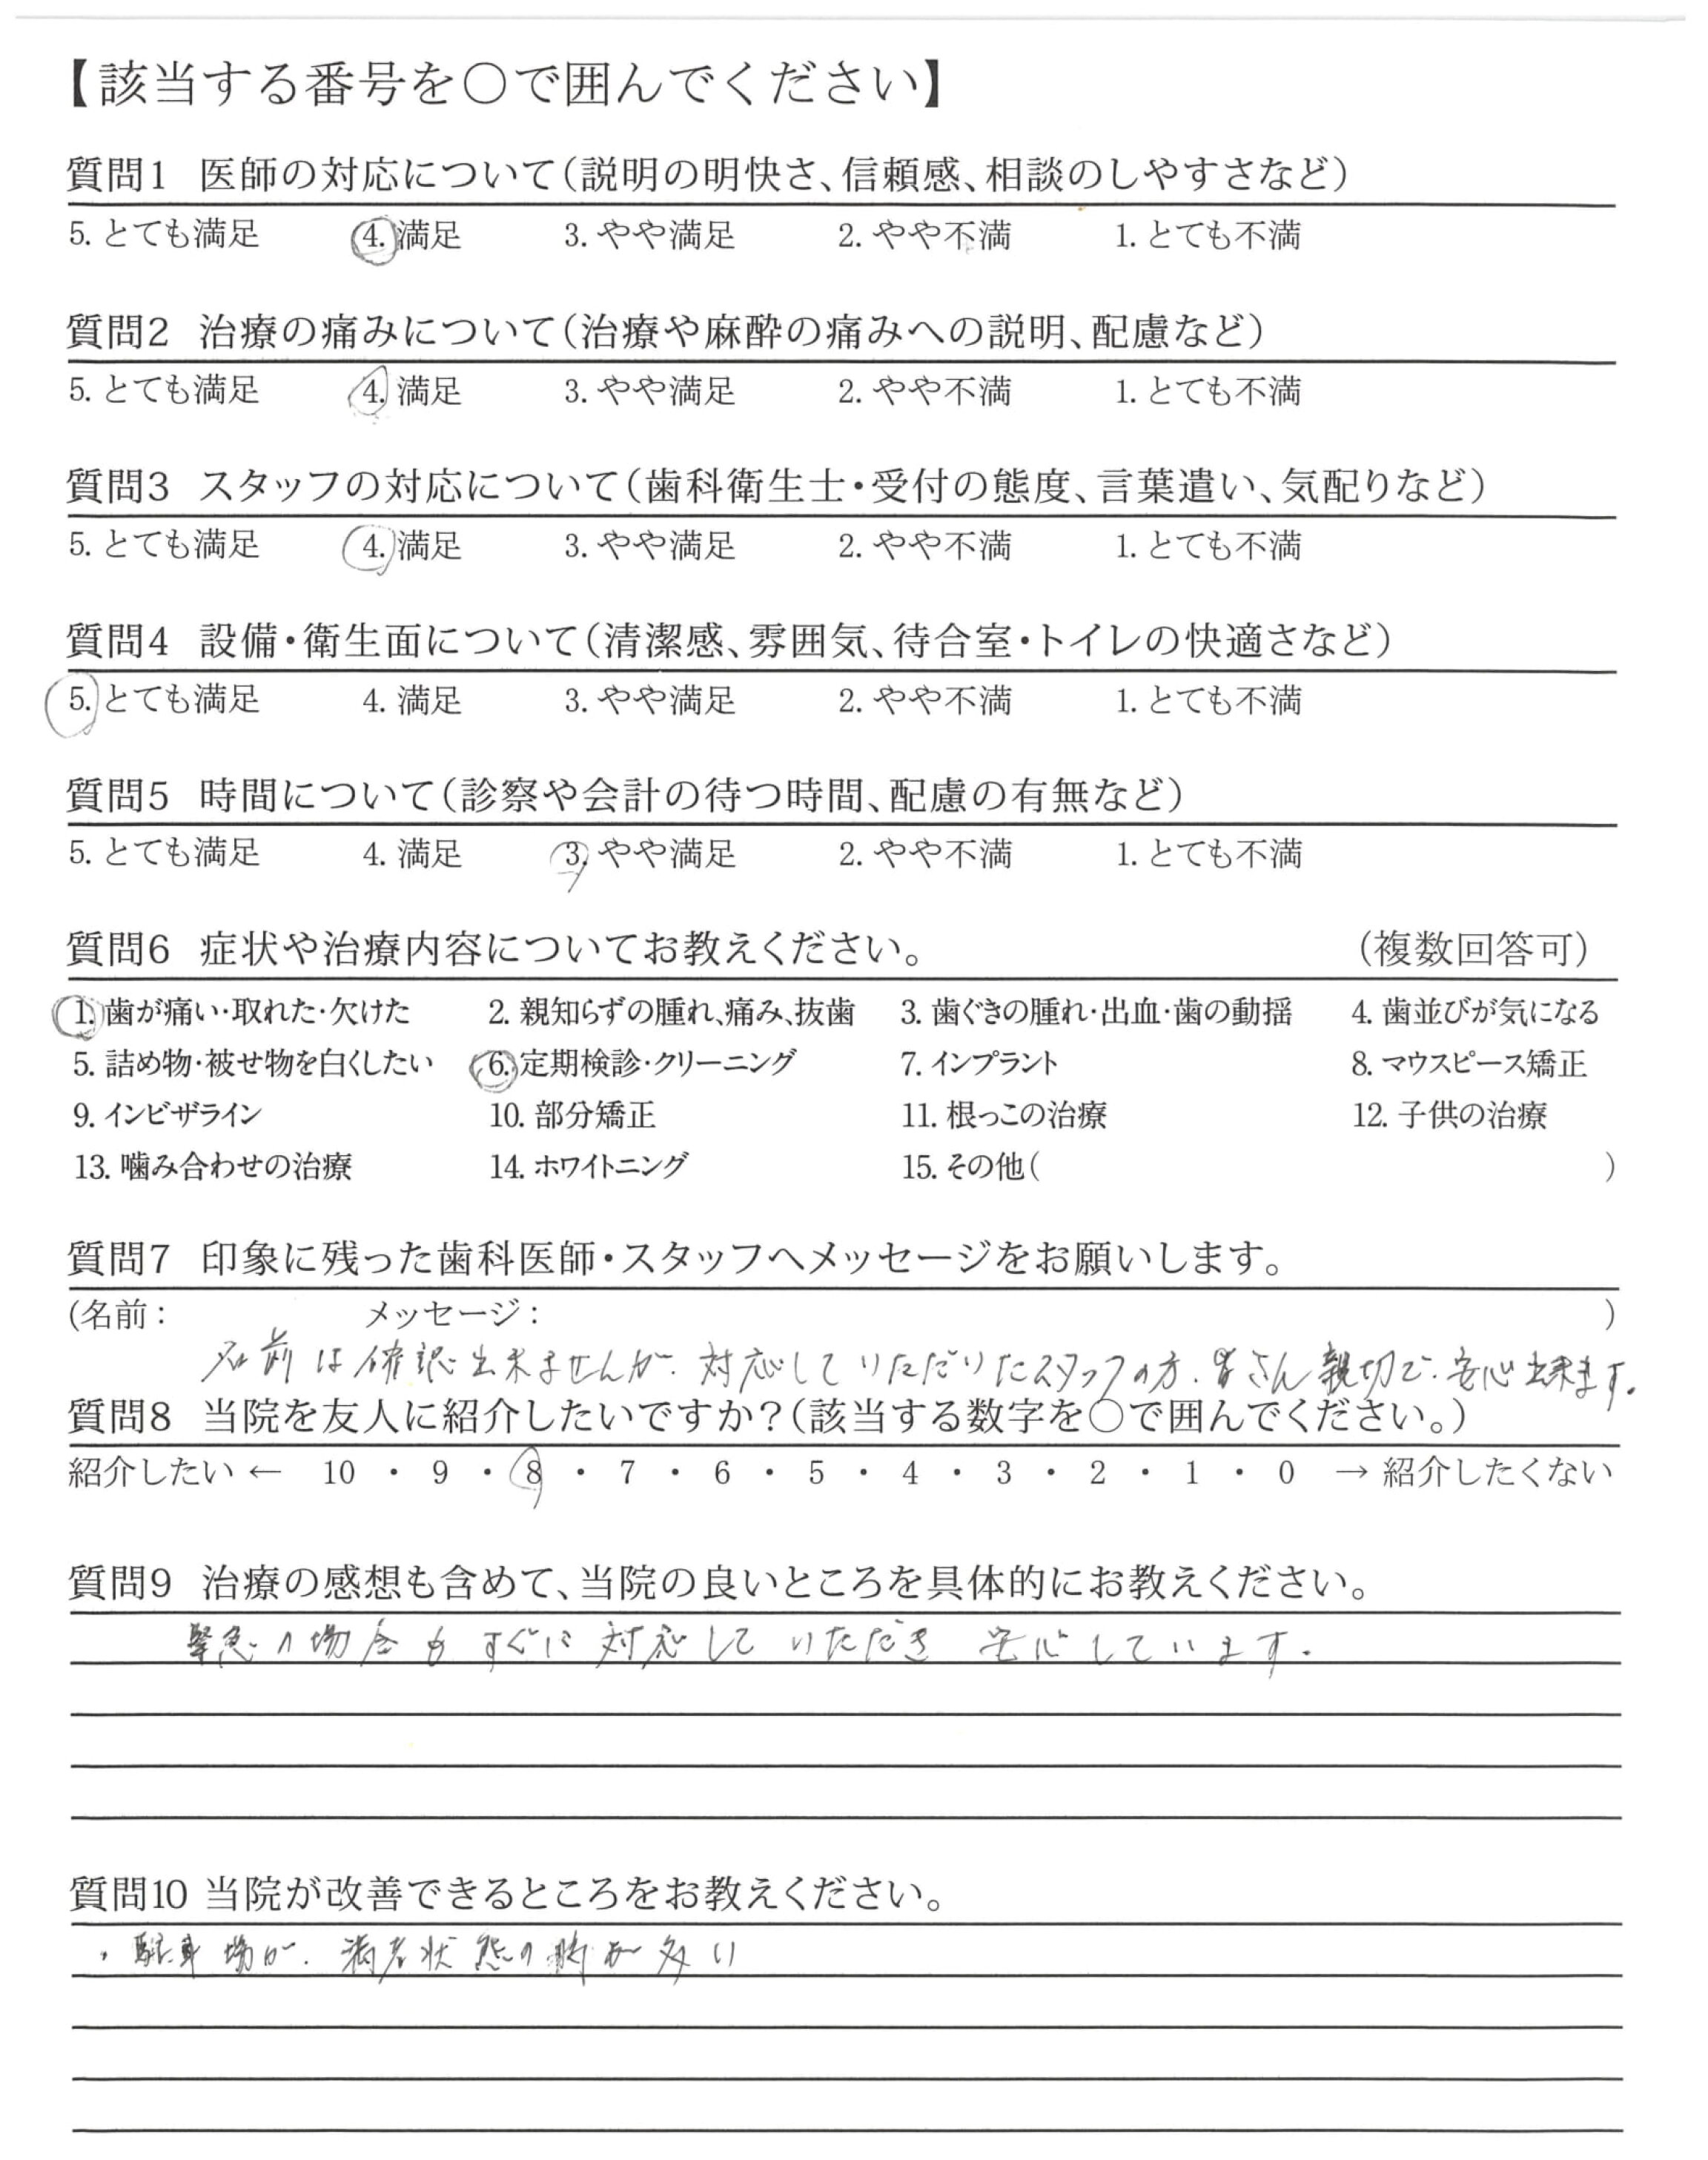 【該当する番号を○で囲んでください】
質問1 医師の対応について(説明の明快さ、信頼感、相談のしやすさなど)
5. とても満足 4. 満足 3. やや満足 2. やや不満 1. とても不満
質問2 治療の痛みについて(治療や麻酔の痛みへの説明、配慮など)
5. とても満足 4. 満足 3. やや満足 2. やや不満 1. とても不満
質問3 スタッフの対応について(歯科衛生士・受付の態度、言葉遣い、気配りなど)
5. とても満足 4. 満足 3. やや満足 2. やや不満 1. とても不満
質問4 設備・衛生面について(清潔感、雰囲気、待合室・トイレの快適さなど)
5. とても満足 4. 満足 3. やや満足 2. やや不満 1. とても不満
質問5 時間について(診察や会計の待つ時間、配慮の有無など)
5. とても満足 4. 満足 3. やや満足 2. やや不満 1. とても不満
質問6 症状や治療内容についてお教えください。 (複数回答可)
1. 歯が痛い・取れた・欠けた 2. 親知らずの腫れ、痛み、抜歯 3. 歯ぐきの腫れ・出血・歯の動揺 4. 歯並びが気になる
5. 詰め物・被せ物を白くしたい 6. 定期検診・クリーニング 7. インプラント 8. マウスピース矯正
9. インビザライン 10. 部分矯正 11. 根っこの治療 12. 子供の治療
13. 噛み合わせの治療 14. ホワイトニング 15. その他( )
質問7 印象に残った歯科医師・スタッフへメッセージをお願いします。
(名前: メッセージ: )
名前は確認出来ませんが、対応していただいたスタッフの方、皆さん親切で、安心出来ます。
質問8 当院を友人に紹介したいですか?(該当する数字を○で囲んでください。)
紹介したい ← 10 ・ 9 ・ 8 ・ 7 ・ 6 ・ 5 ・ 4 ・ 3 ・ 2 ・ 1 ・ 0 → 紹介したくない
質問9 治療の感想も含めて、当院の良いところを具体的にお教えください。
緊急の場合もすぐに対応していただき 安心しています。
質問10 当院が改善できるところをお教えください。
・駐車場が、満車状態の時が多い